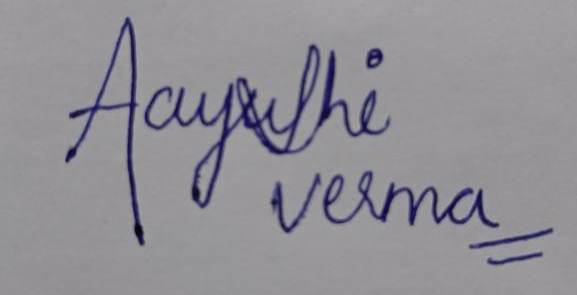 Aayushi
verma